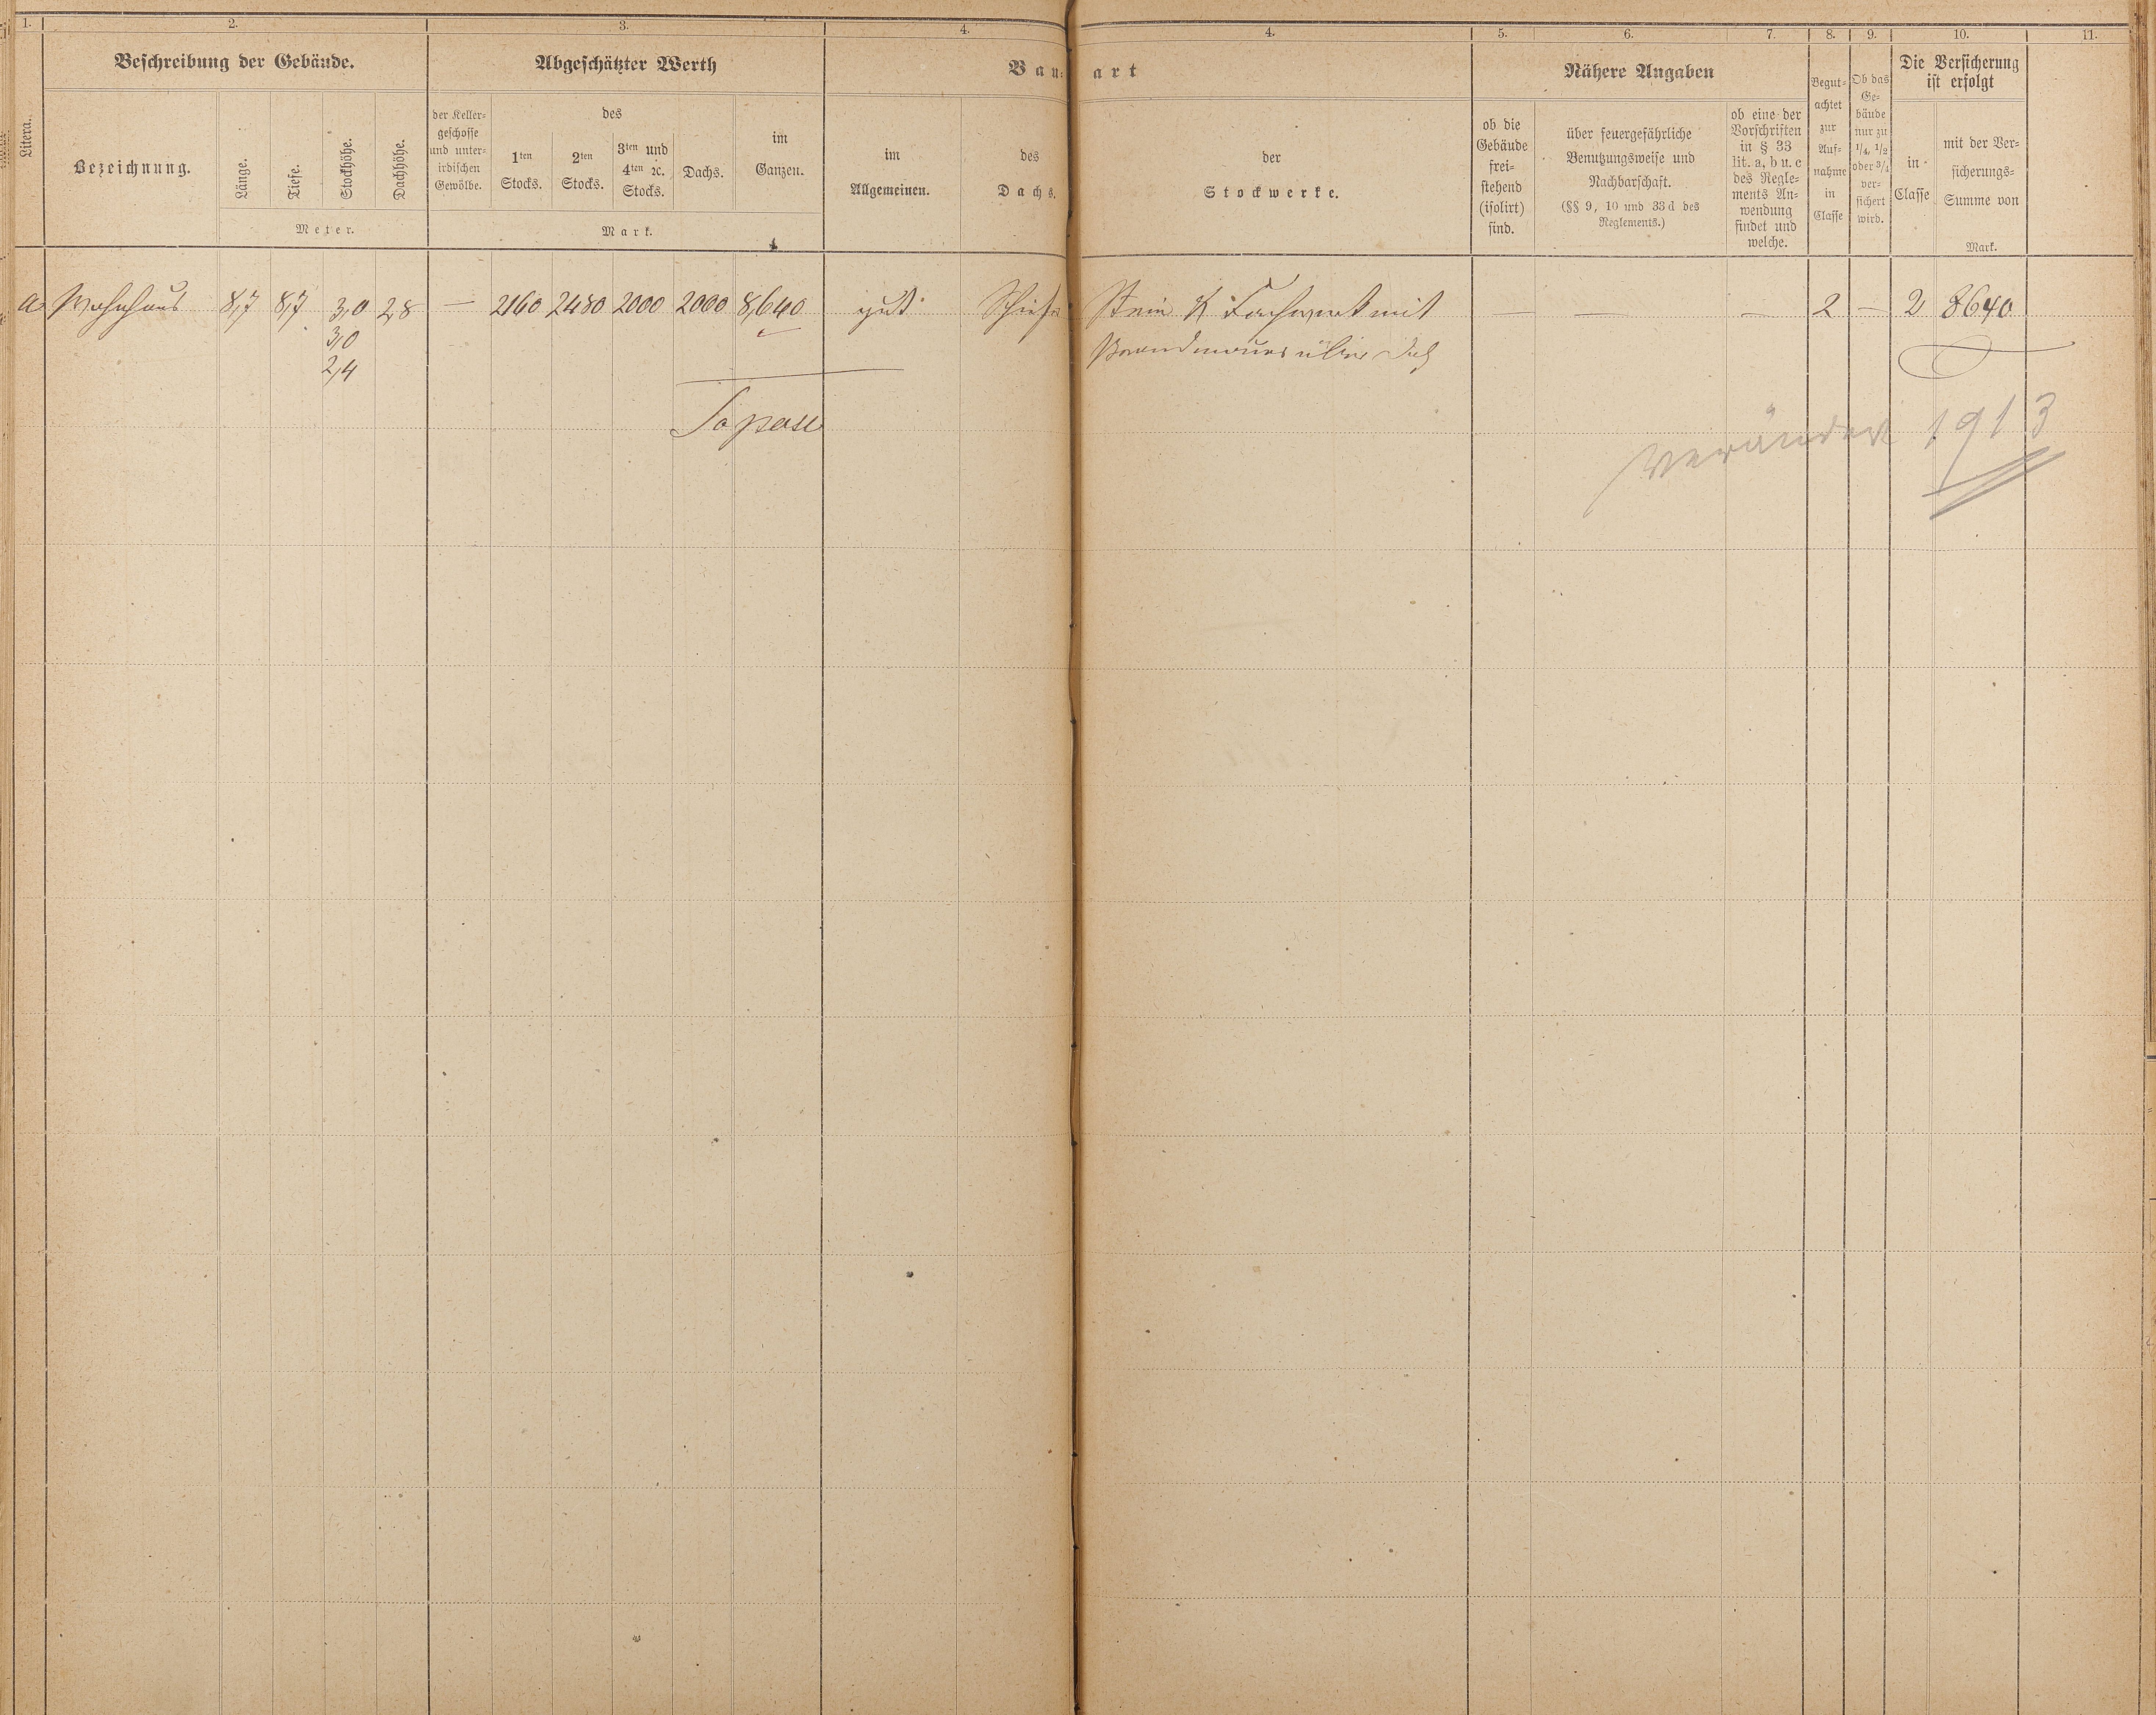 1. 2. 3. 4. 4. 5. 6. 7. 8. 9. 10. 11.
Litera.
Beschreibung der Gebäude.
Bezeichnung.
Länge.
Tiefe.
Stockhöhe.
Dachhöhe.
Meter.
Abgeschätzter Werth
der Keller-
geschosse
und unter-
irdischen
Gewölbe.
des
1ten
Stocks.
2ten
Stocks.
3ten und
4ten ꝛc.
Stocks.
Dachs.
im
Ganzen.
Mark.
Bau-
im
Allgemeinen.
des
Dachs.
art
der
Stockwerke.
ob die
Gebäude
frei-
stehend
(isolirt)
sind.
Nähere Angaben
über feuergefährliche
Benutzungsweise und
Nachbarschaft.
(§§ 9, 10 und 33 d des
Reglements.)
ob eine der
Vorschriften
in § 33
lit. a, b u. c
des Regle-
ments An-
wendung
findet und
welche.
Begut-
achtet
zur
Auf-
nahme
in
Classe
Ob das
Ge-
bäude
nur zu
1/4, 1/2
oder 3/4
ver-
sichert
wird.
Die Versicherung
ist erfolgt
in
Classe
mit der Ver-
sicherungs-
Summe von
Mark.
a Wohnhaus 8,7 8,7 3,0 2,8 — 2160 2480 2000 2000 8,640 gut Schiefer Stein & Fachwerk mit — — — 2 — 2 8640
3,0 Brandmauer über Dach
2,4
verändert 1913